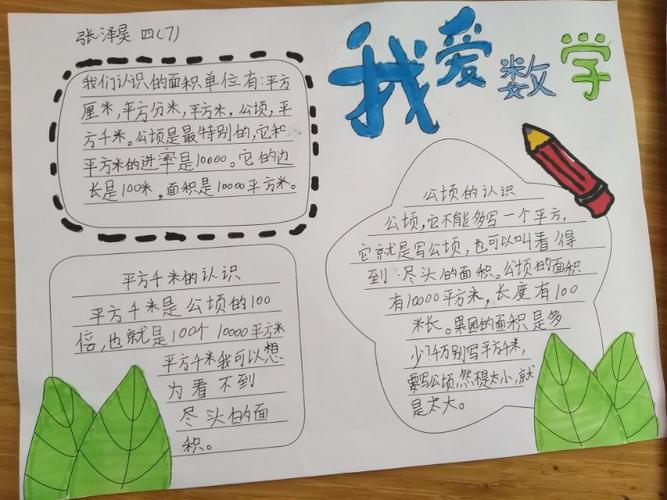 张泽昊 四(7)
我爱数学
我们认识的面积单位有:平方
厘米,平方分米,平方米,公顷,平
方千米。公顷是最特别的,它和
平方米的进率是10000。它的边
长是100米,面积是10000平方米。
平方千米的认识
平方千米是公顷的100
倍,也就是100个10000平方米
平方千米我可以想
为看不到
尽头的面
积。
公顷的认识
公顷,它不能多写一个平方,
它就是写公顷,也可以叫看得
到尽头的面积。公顷的面积
有10000平方米,长度有100
米长。果园的面积是多
少?千万别写平方千米,
要写公顷,然提太小,就
是太大。